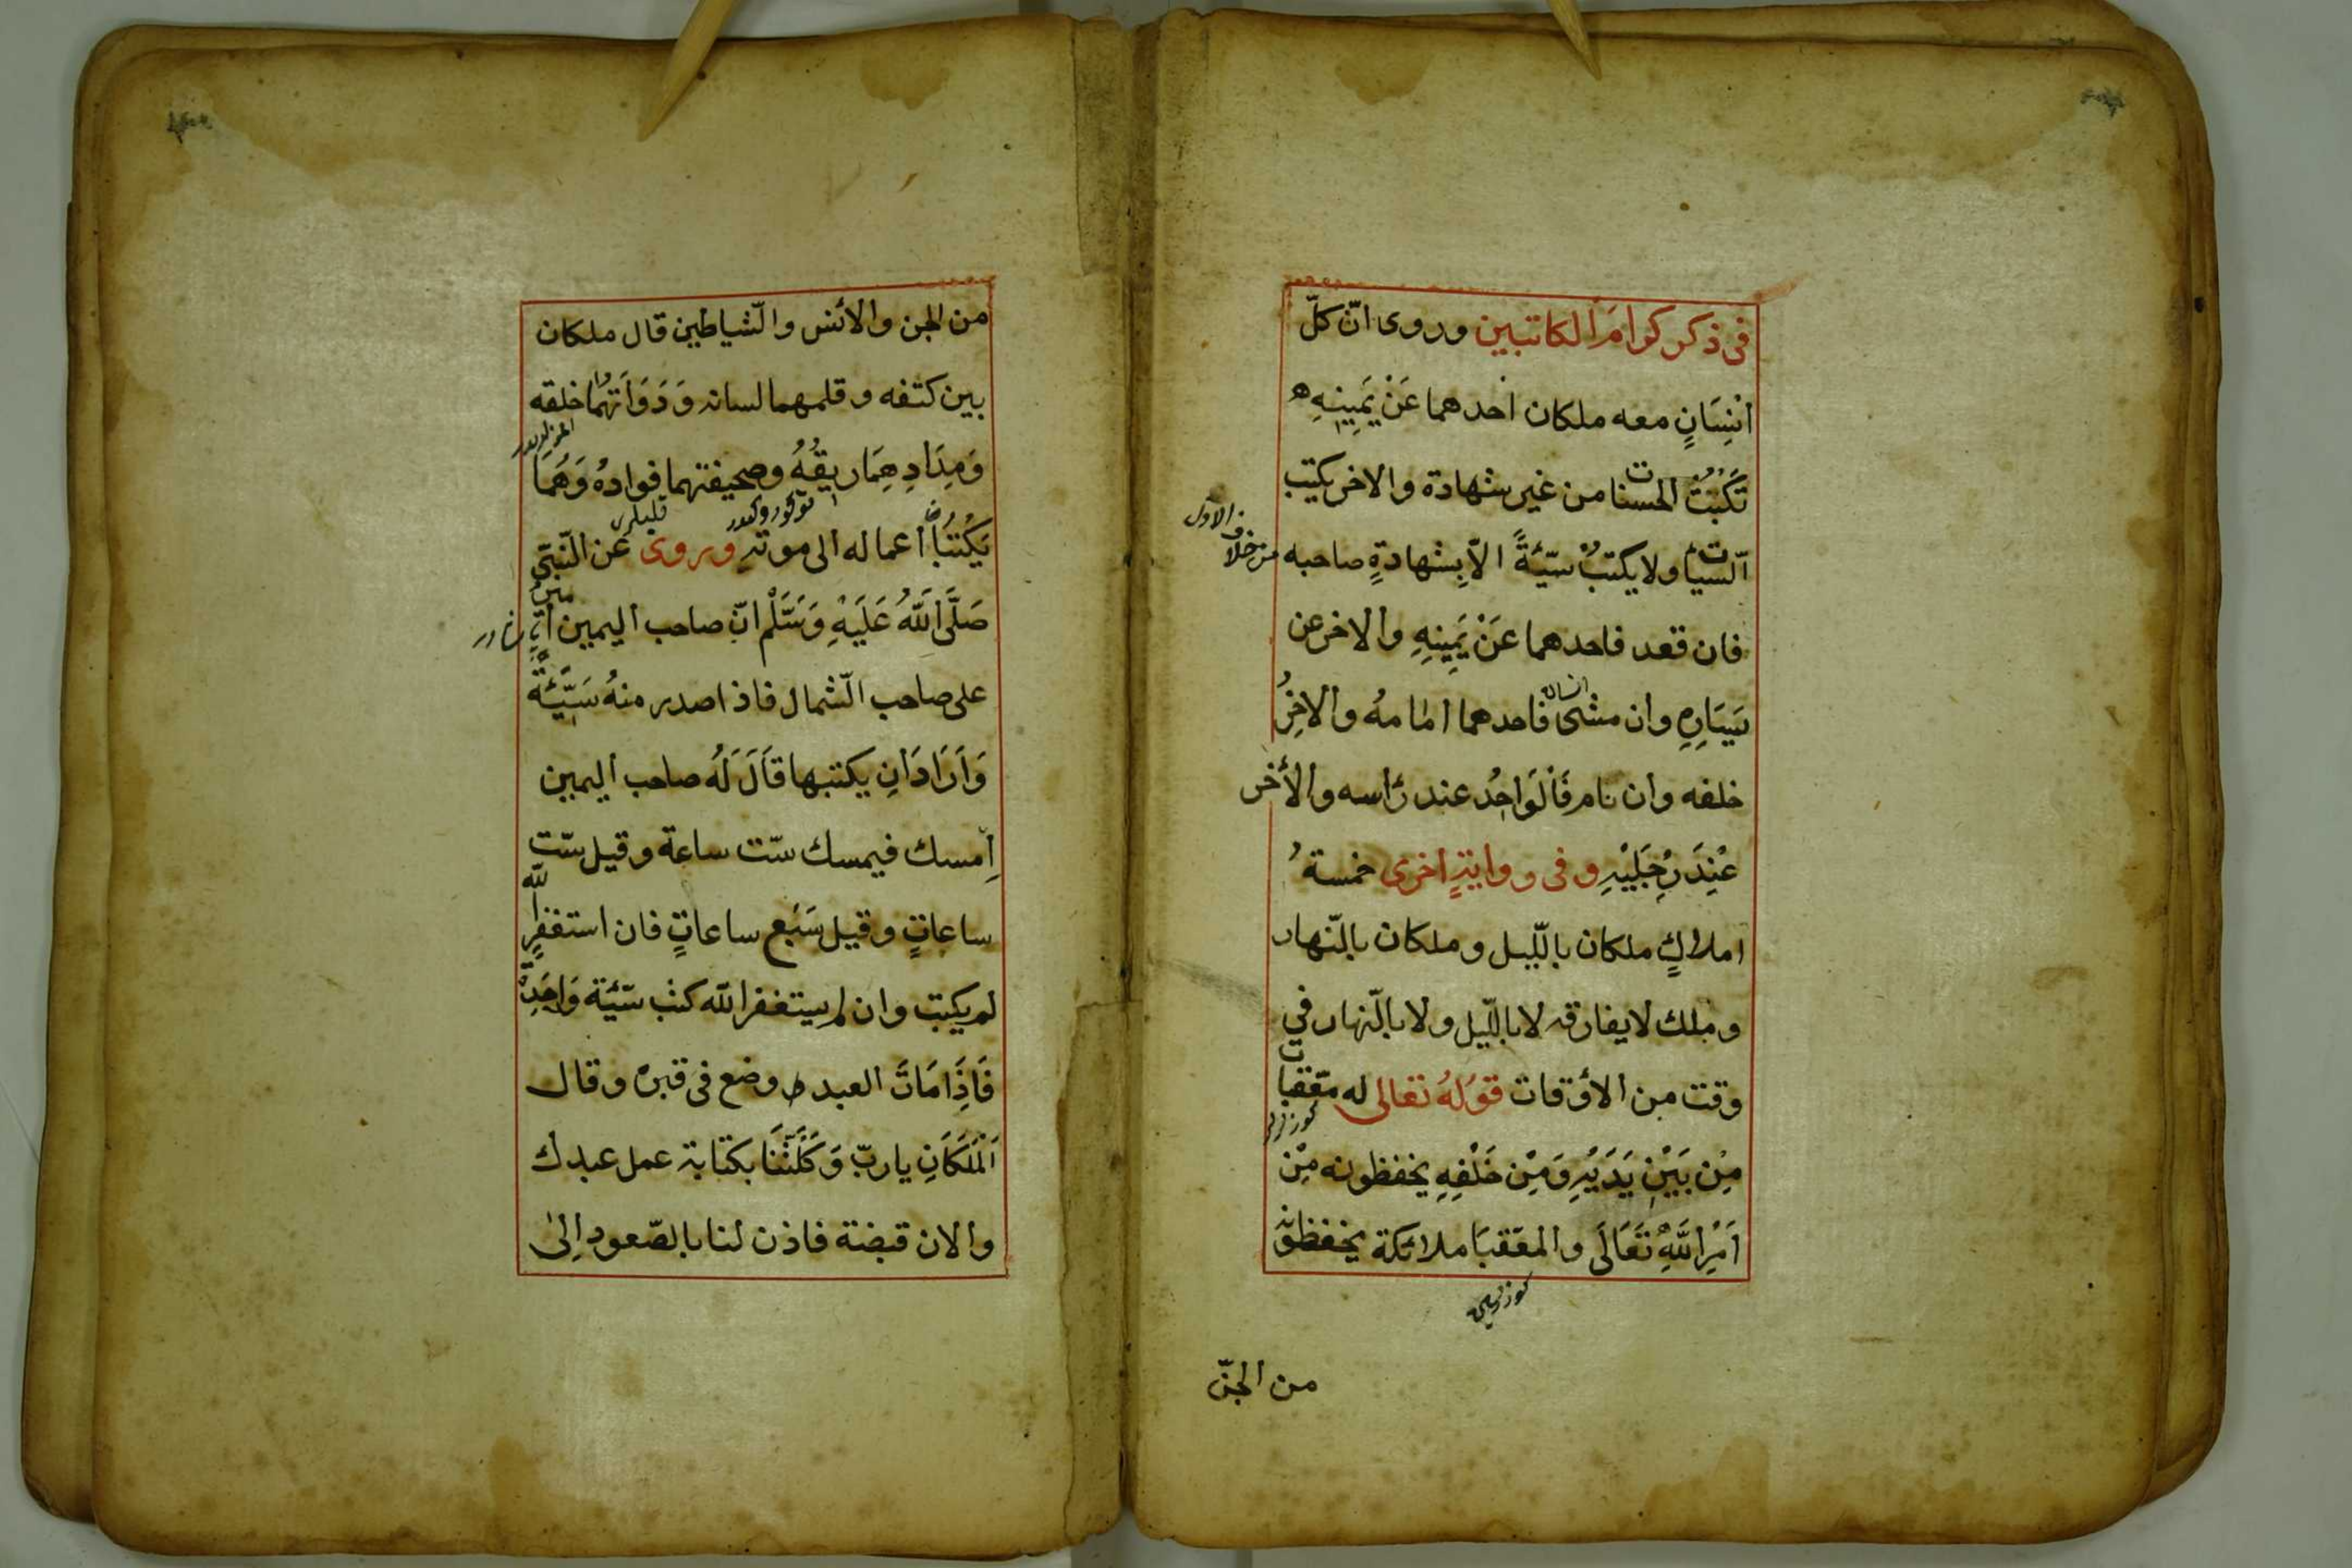 فى ذكر كرامَ الكاتبين وروى انّ كلّ
اِنْسَانٍ معه ملكان احدهما عَنْ يَمِينِهِ
تَكْتُبُ الحسنات من غير شهادة والاخر يكتب
السّيأت ولا يكتبُ سَيّئةً الاّ بِشهادةٍ صاحبه
من خلاف الاوّل
فان قعد فاحدهما عَنْ يَمِينِهِ والاخر عن
يَسَارِهِ وان مشى فاحدهما امامهُ والاخِرُ
انسان
خلفه وان نام فَالْوَاحِدُ عند رأسه والأخر
عِنْدَ رِجْلَيْهِ وفى رواية اخرى خمسةُ
املاكٍ ملكان بالّليل وملكان بالنّهار
وملك لا يفارقه لا بالّليل ولا بالنّهار في
وقت من الأوقات قولهُ تعالى له معّقبات
مِنْ بَيْنِ يَدَيْهِ وَمِنْ خَلْفِهِ يحفظونه مِنْ
اَمْرِ اللَّهِ تَعَالَى والمعّقبَا ملائكة يحفظونه
من الجنّ
من الجن والأنس والّشياطين قال ملكان
بين كتفه وقلمهما لسانه وَدَوَاتهُمَا خلقه
وَمِدَادِهِمَا ريقُهُ وصحيفتهما فوادهُ وَهُمَا
يَكْتُبَا أعماله الى موته وروى عن النّبىّ
صَلَّى اللَّهُ عَلَيْهِ وَسَلَّمْ انّ صاحب اليمين
على صاحب الّشمال فاذا صدر منهُ سَيِّئَةً
وَاَرَادَ اَنِ يكتبها قَالَ لَهُ صاحب اليمين
اِمسك فيمسك ستّ ساعة وقيل ستّ
ساعاتٍ وقيل سَبْع ساعاتٍ فان استغفر الله
لم يكتب وان لم يستغفر الله كتب سيّئة وَاحِدَةٌ
فَاِذَا مَاتَ العبد وضع فى قبره وقال
اَلْمَلَكَانِ يا ربّ وَكَّلْتَنَا بكتابة عمل عبدك
والان قبضته فاذن لنا بالصّعود اِلىٰ